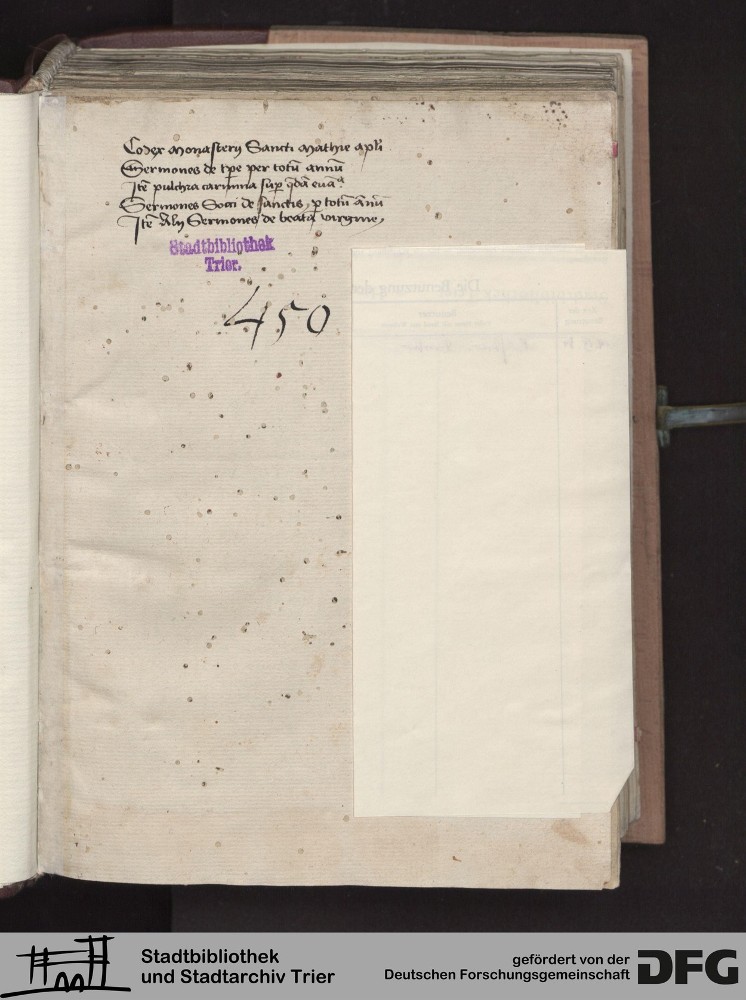 Codex monasterij Sancti Mathie apl'i
Sermones de tp̄e per totū annū
Itē pulchra carmina sup̄ q̄dā euāᵃ
Sermones Socci de sanctis, p totū ānū
Itē Alij Sermones de beata virgine,
Stadtbibliothek
Trier.
450
Die Benutzung der
Stadtbibliothek
und Stadtarchiv Trier
gefördert von der
Deutschen Forschungsgemeinschaft
DFG